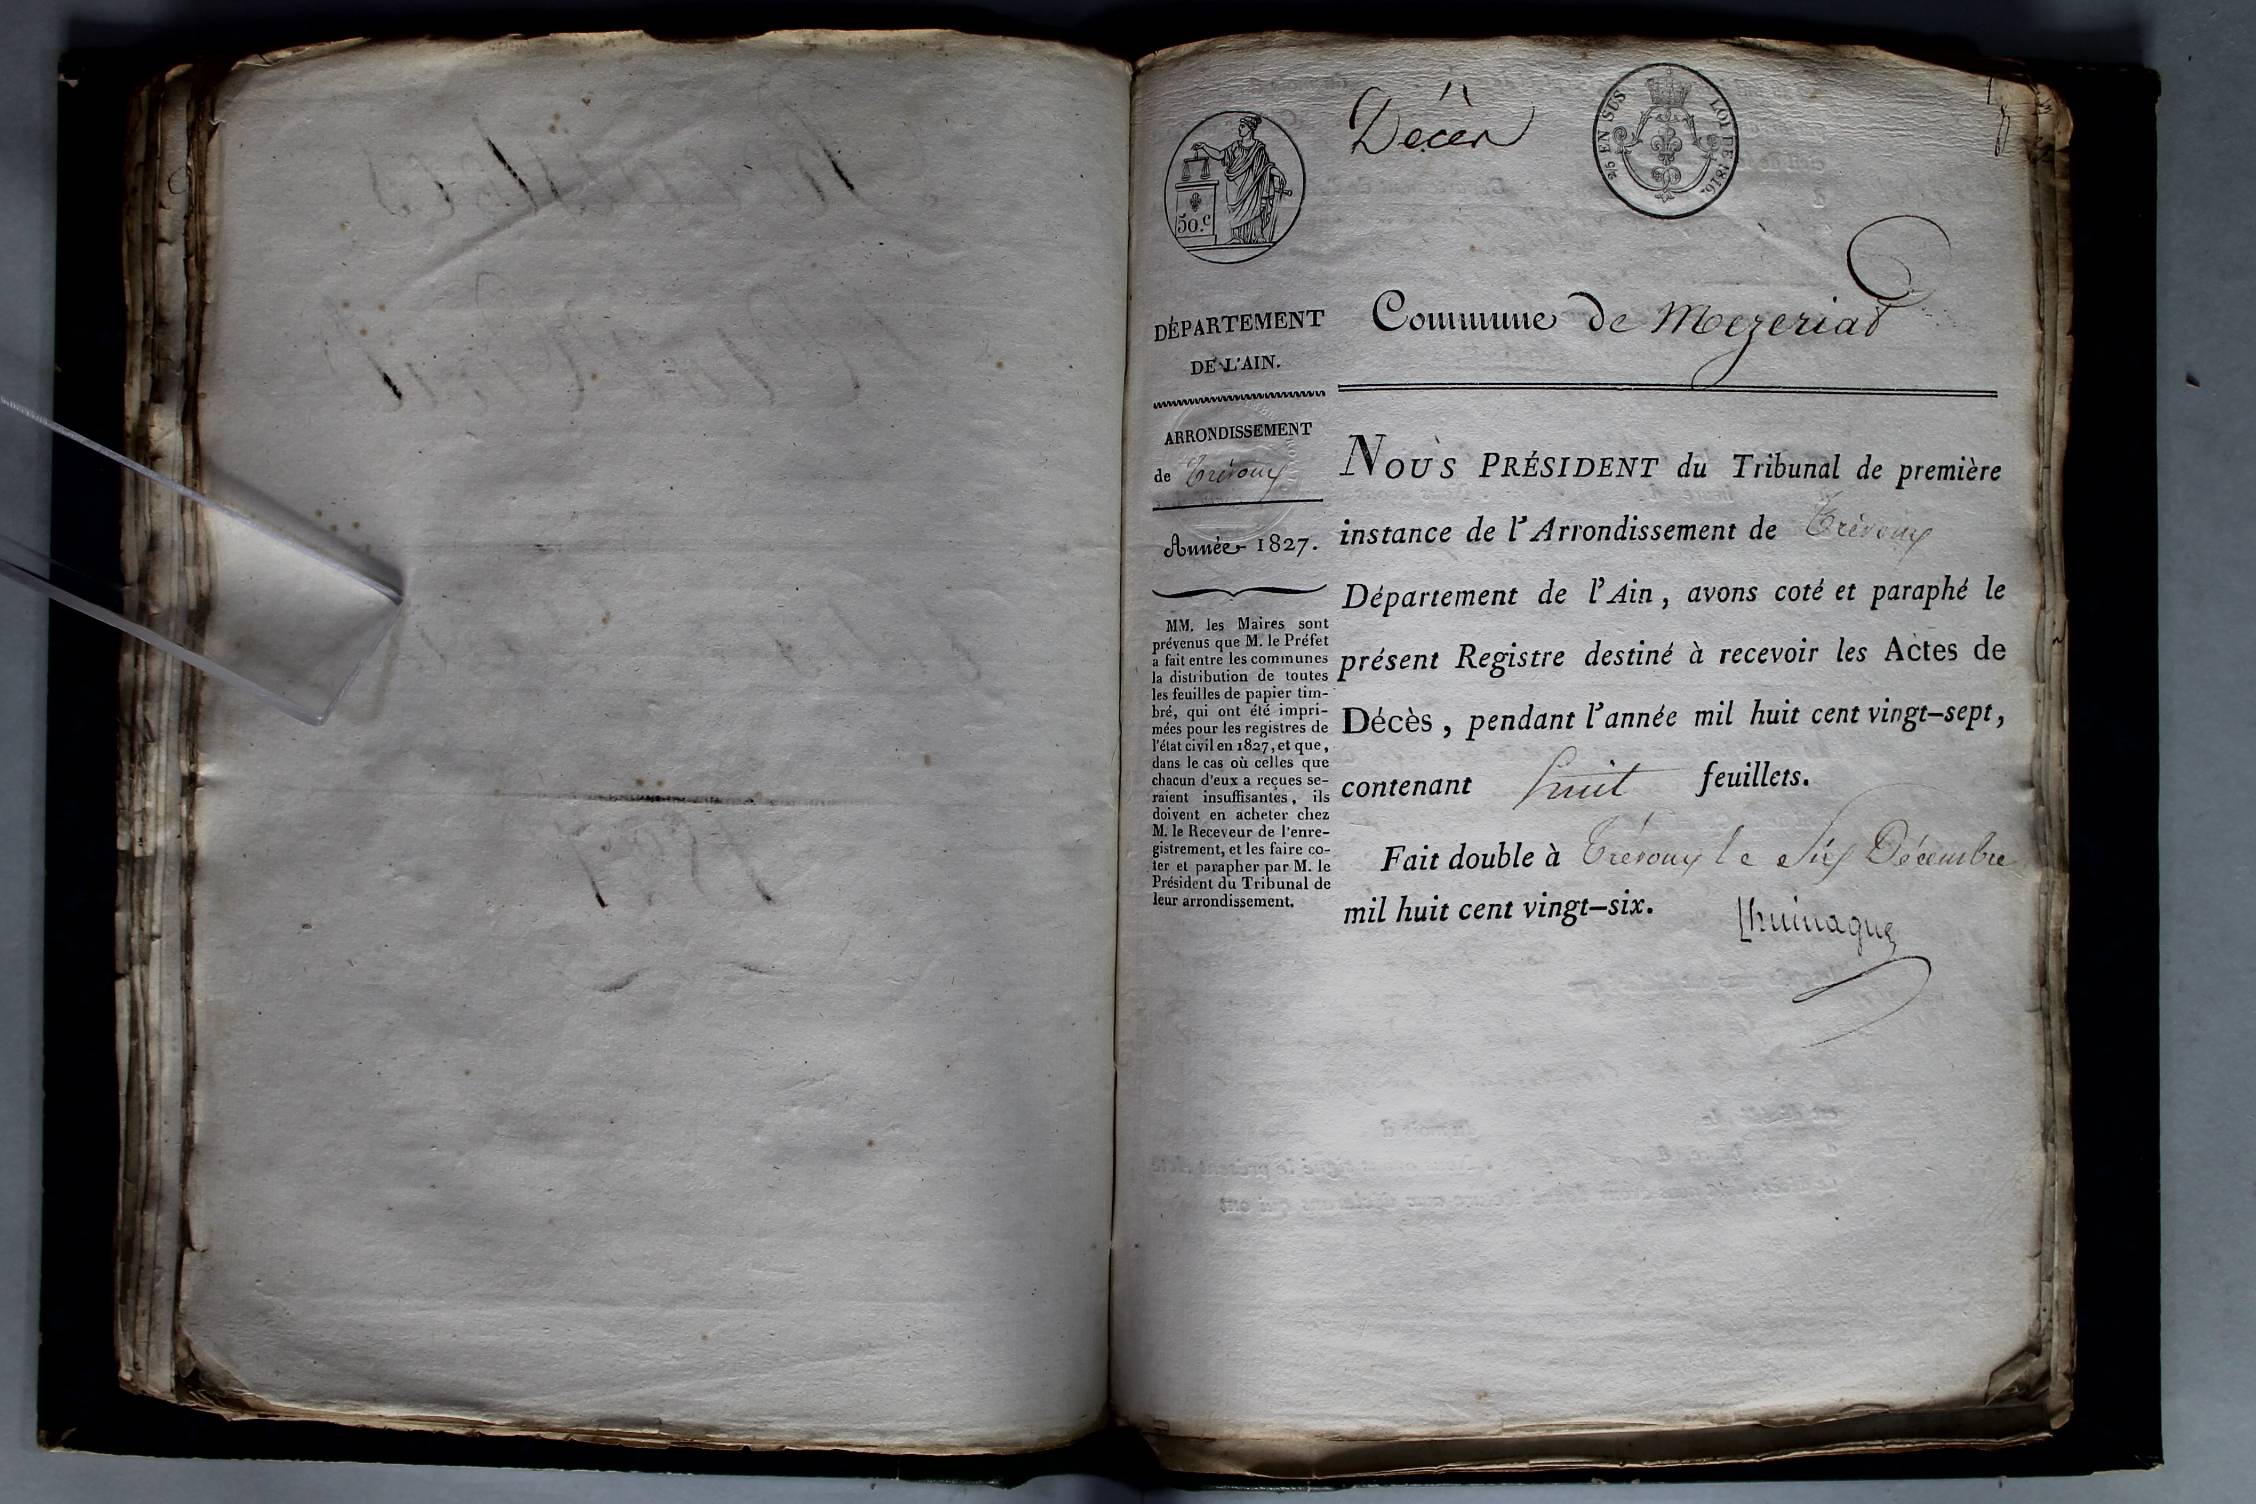 Décès
50.c
25 EN SUS
LOI DE 1816.
DÉPARTEMENT
DE L'AIN.
ARRONDISSEMENT
de Trévoux
Année 1827.
MM. les Maires sont
prévenus que M. le Préfet
a fait entre les communes
la distribution de toutes
les feuilles de papier tim-
bré, qui ont été impri-
mées pour les registres de
l'état civil en 1827, et que,
dans le cas où celles que
chacun d'eux a reçues se-
raient insuffisantes, ils
doivent en acheter chez
M. le Receveur de l'enre-
gistrement, et les faire co-
ter et parapher par M. le
Président du Tribunal de
leur arrondissement.
Commune de Mezeriat
NOUS PRÉSIDENT du Tribunal de première
instance de l'Arrondissement de Trévoux
Département de l'Ain, avons coté et paraphé le
présent Registre destiné à recevoir les Actes de
Décès, pendant l'année mil huit cent vingt-sept,
contenant huit feuillets.
Fait double à Trévoux le Six Décembre
mil huit cent vingt-six.